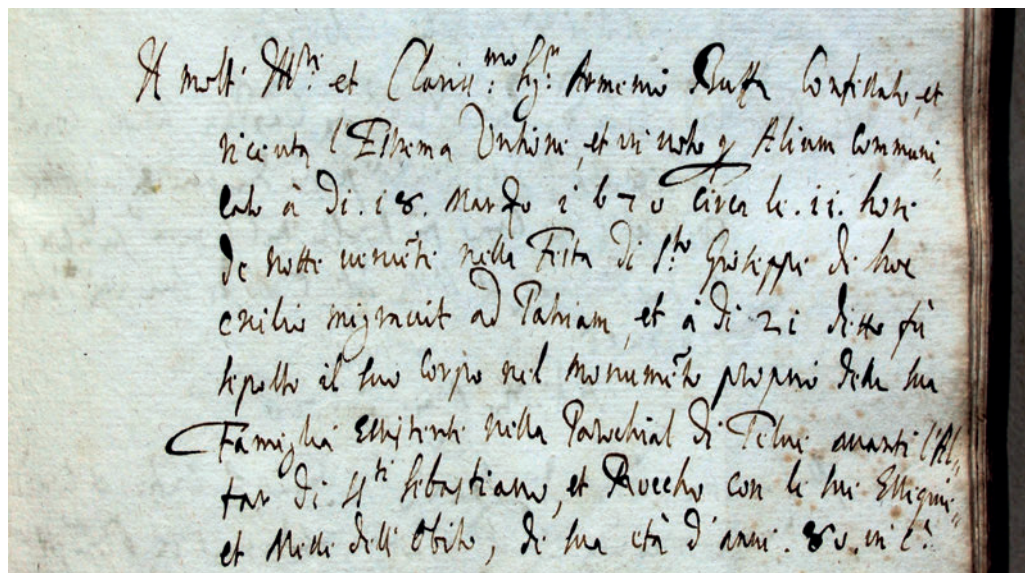 Il molto Ill.re et Clariss.mo Sig.r Armenio Buffa Confessato, et
ricevuta l'Estrema Untione, et in voto p Alium Communi,,
cato à di. 18. Marzo 1670 circa le. 11. hore
de notte veniēte nella Festa di S.to Gioseppe de hoc
exilio migravit ad Patriam, et à di 21 detto fù
sepolto il suo Corpo nel monumēto proprio della sua
Famiglia essistente nella Parochial di Telve avanti l'Al,,
tar di SS.ti Sebastiano, et Roccho con le sue Essequie,,
et Messe dell' Obito, de sua età d'anni. 80. in c.a